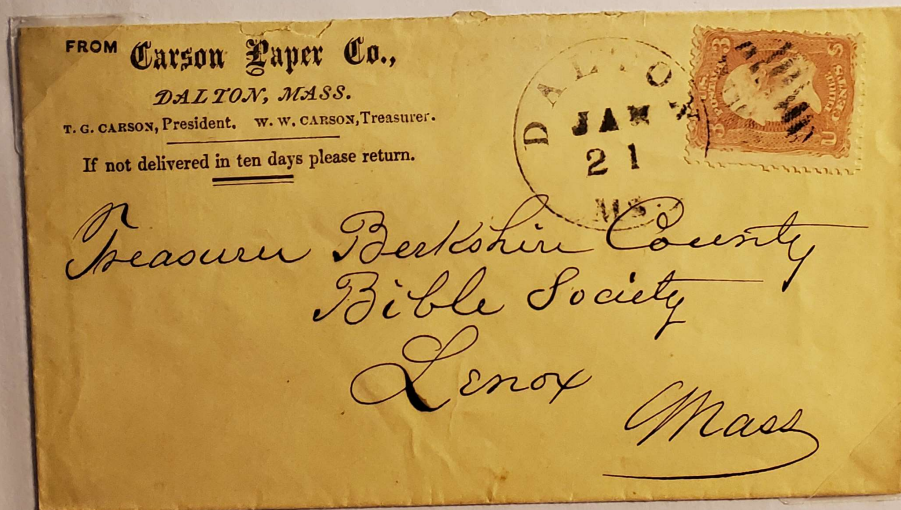 FROM Carson Paper Co.,
DALTON, MASS.
T. G. CARSON, President. W. W. CARSON, Treasurer.
If not delivered in ten days please return.
DALTON
JAN
21
MS.
Treasurer Berkshire County
Bible Society
Lenox
Mass